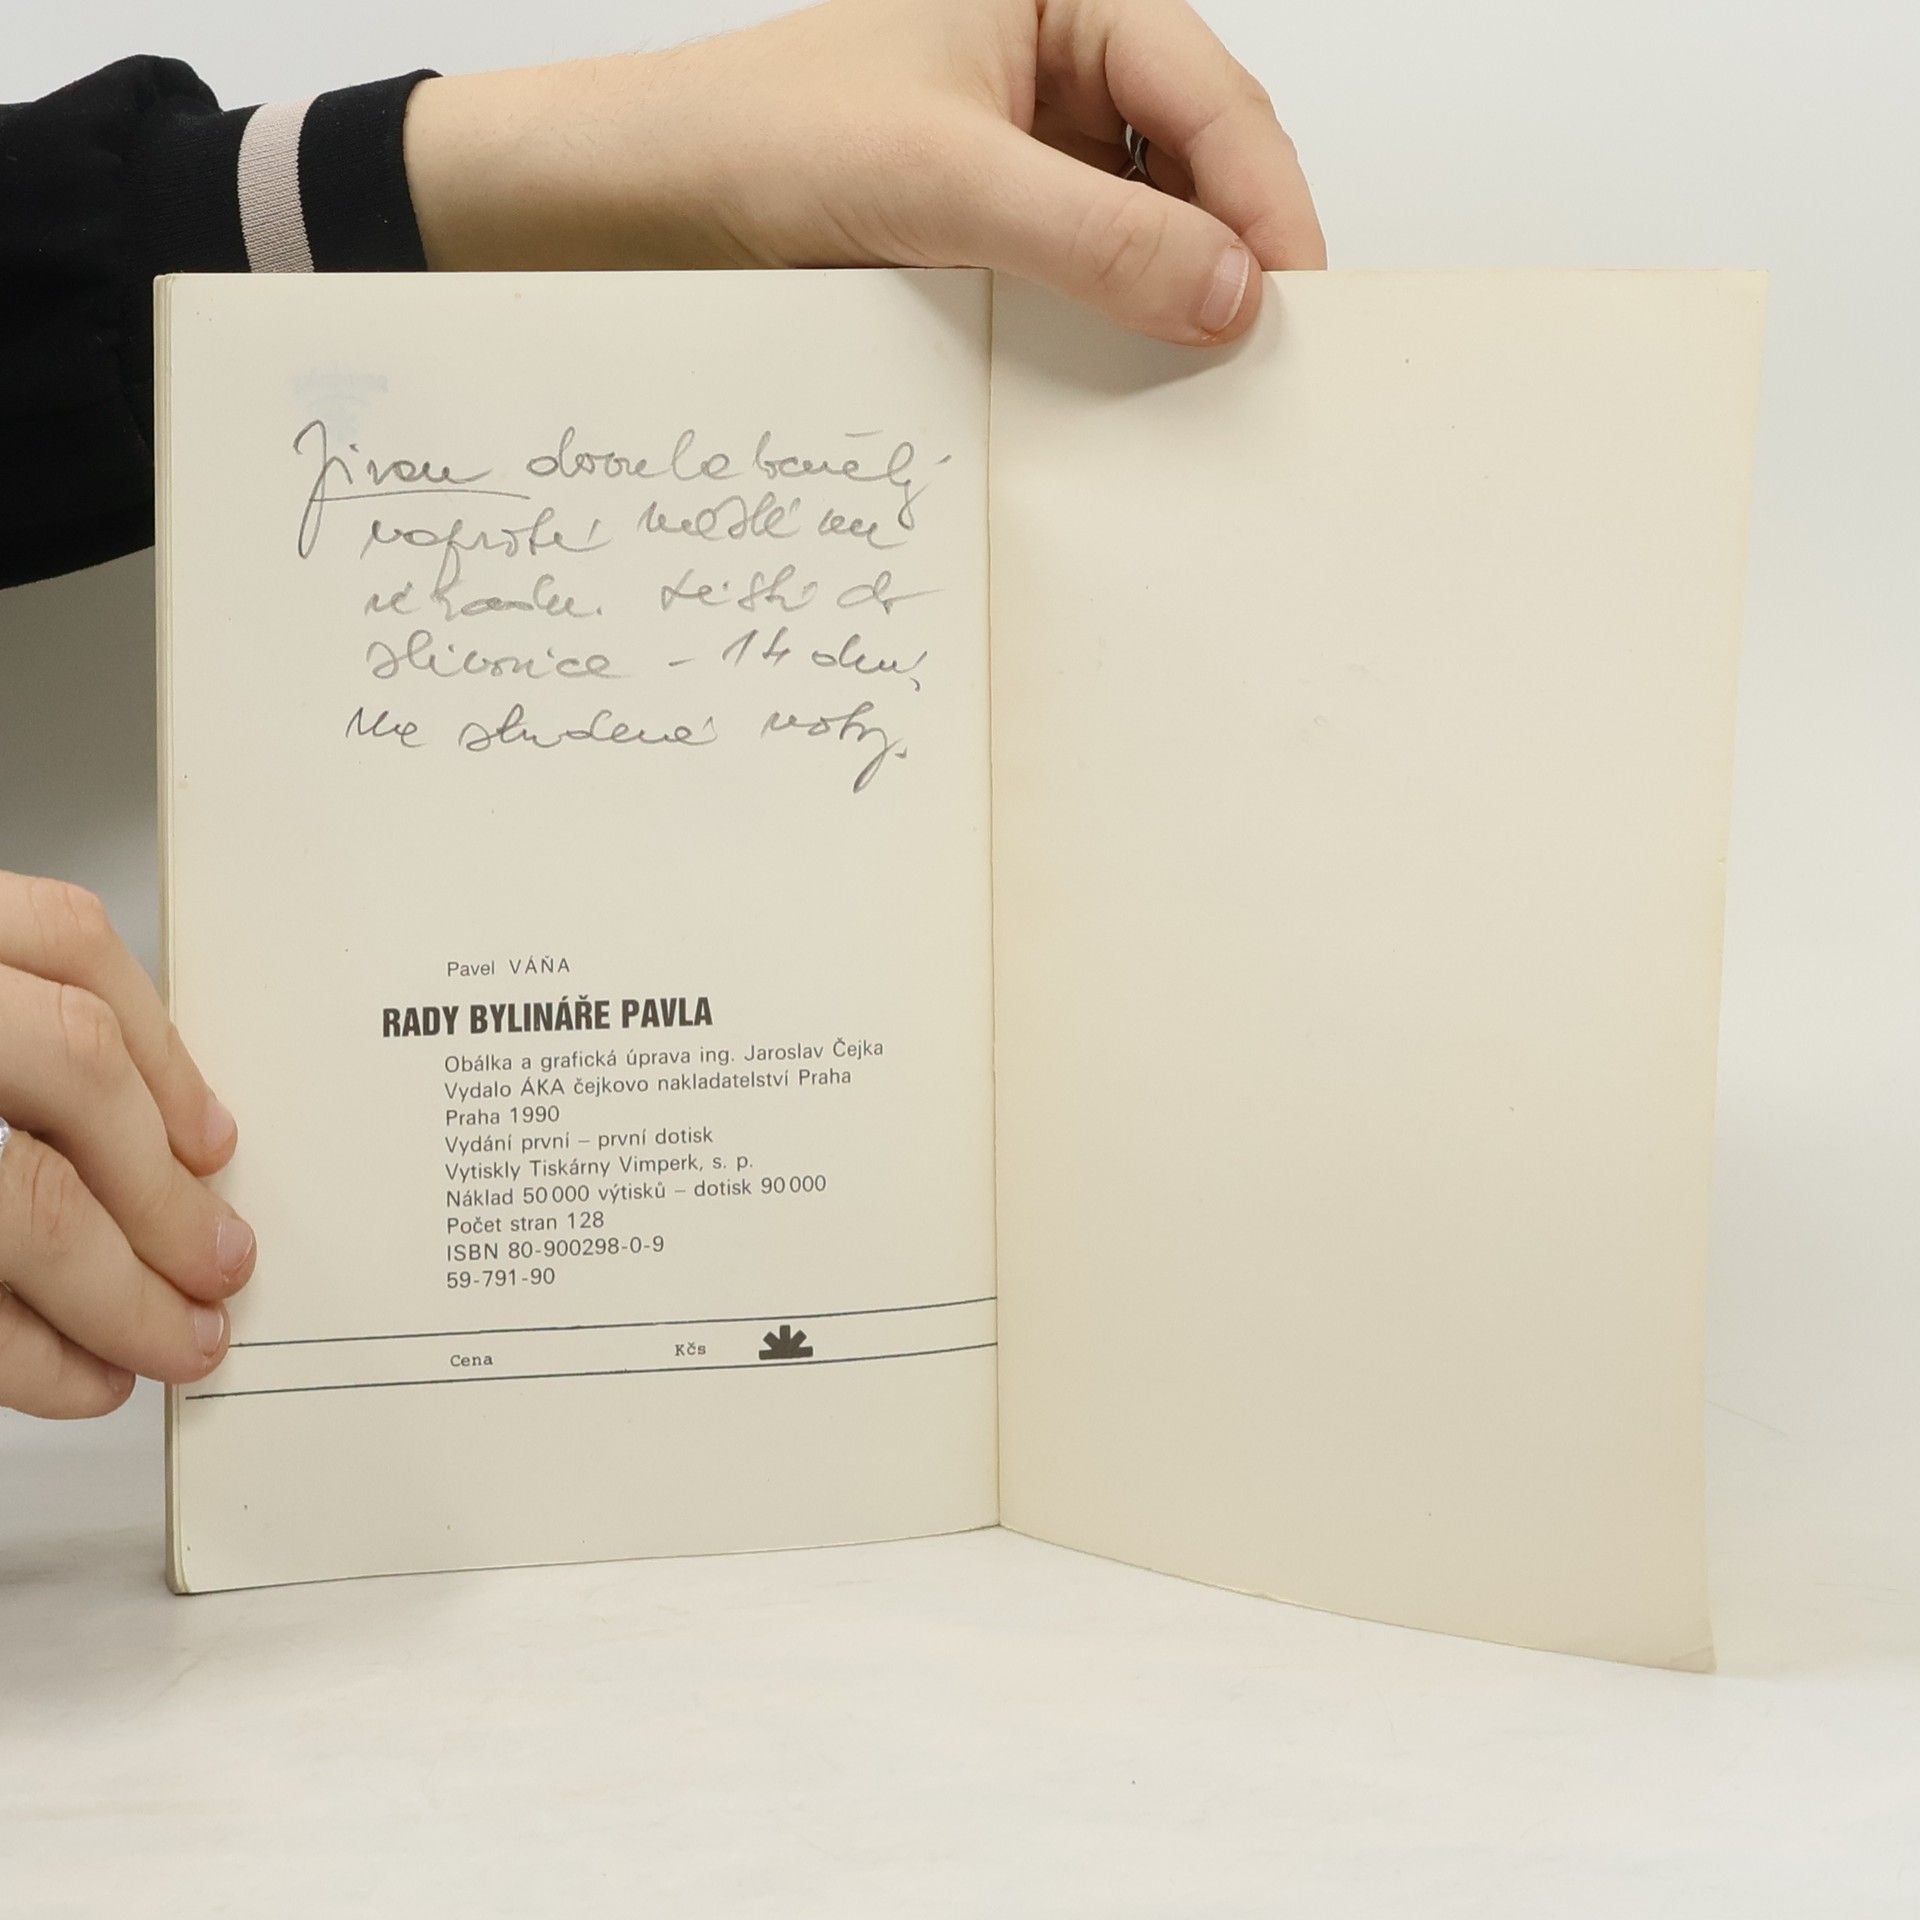 Jivan dvoulaločnatý
naproti
. Listí do
slivovice – 14 dní,
Na studené nohy.
Pavel VÁŇA
RADY BYLINÁŘE PAVLA
Obálka a grafická úprava ing. Jaroslav Čejka
Vydalo ÁKA čejkovo nakladatelství Praha
Praha 1990
Vydání první – první dotisk
Vytiskly Tiskárny Vimperk, s. p.
Náklad 50 000 výtisků – dotisk 90 000
Počet stran 128
ISBN 80-900298-0-9
59-791-90
Cena Kčs